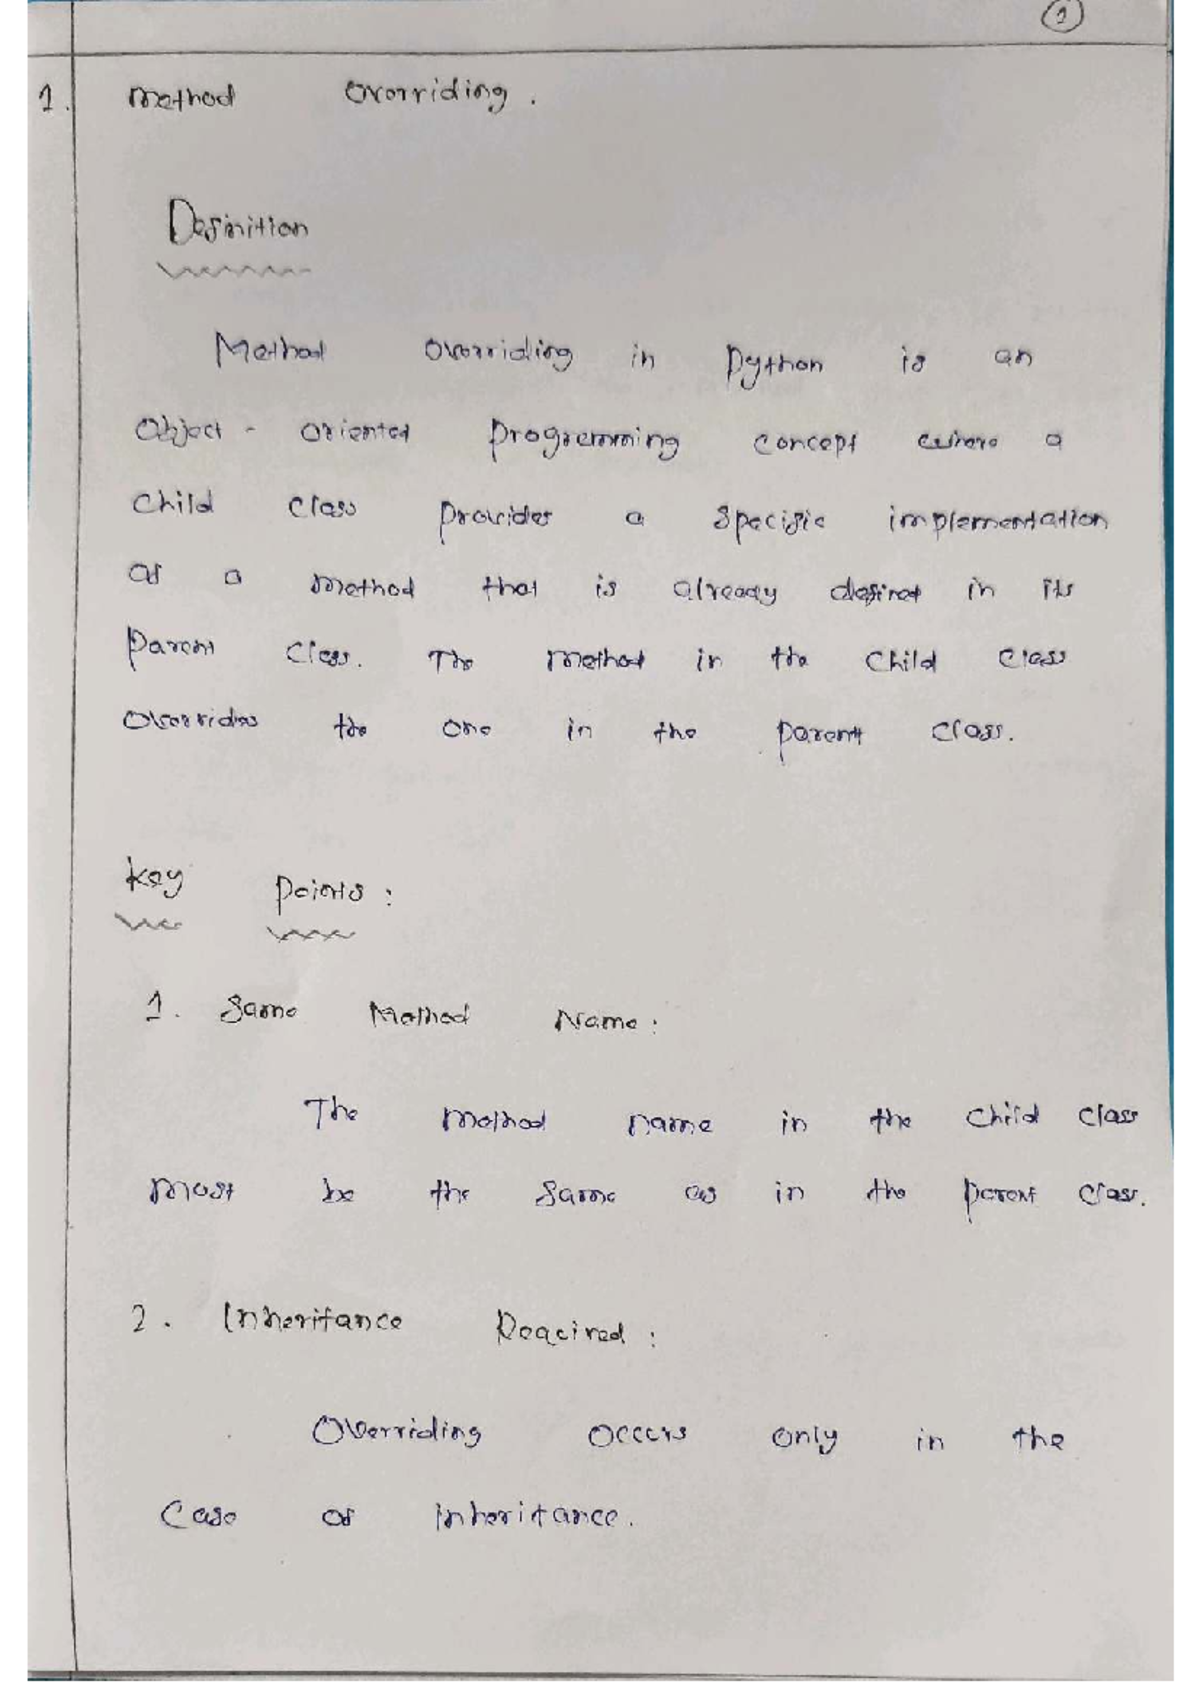 1
1. Method Overriding.
Definition
Method Overriding in Python is an
Object - oriented programming concept where a
child class provides a specific implementation
of a method that is already defined in its
Parent class. The method in the child class
Overrides the one in the parent class.
Key Points :
1. Same Method Name :
The method name in the child class
must be the same as in the parent class.
2. Inheritance Reqcired :
Overriding occurs only in the
Case of inheritance.